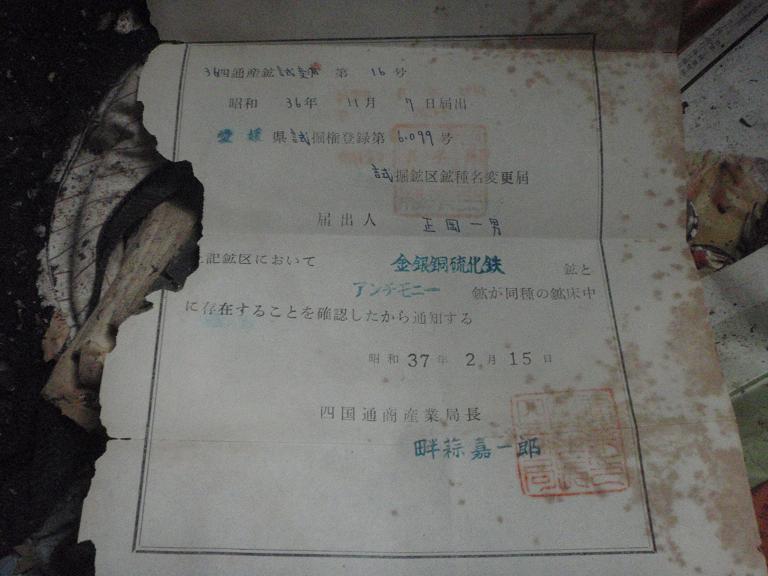 36四通産鉱試変第16号
昭和36年11月7日届出
愛媛県試掘権登録第6.099号
試掘鉱区鉱種名変更届
届出人 正岡一男
記鉱区において 金銀銅硫化鉄 鉱と
アンチモニー 鉱が同種の鉱床中
に存在することを確認したから通知する
昭和37年2月15日
四国通商産業局長
畔蒜嘉一郎